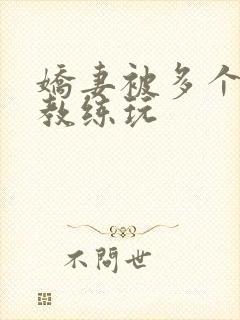 嬌妻被多个
教练玩
不問世